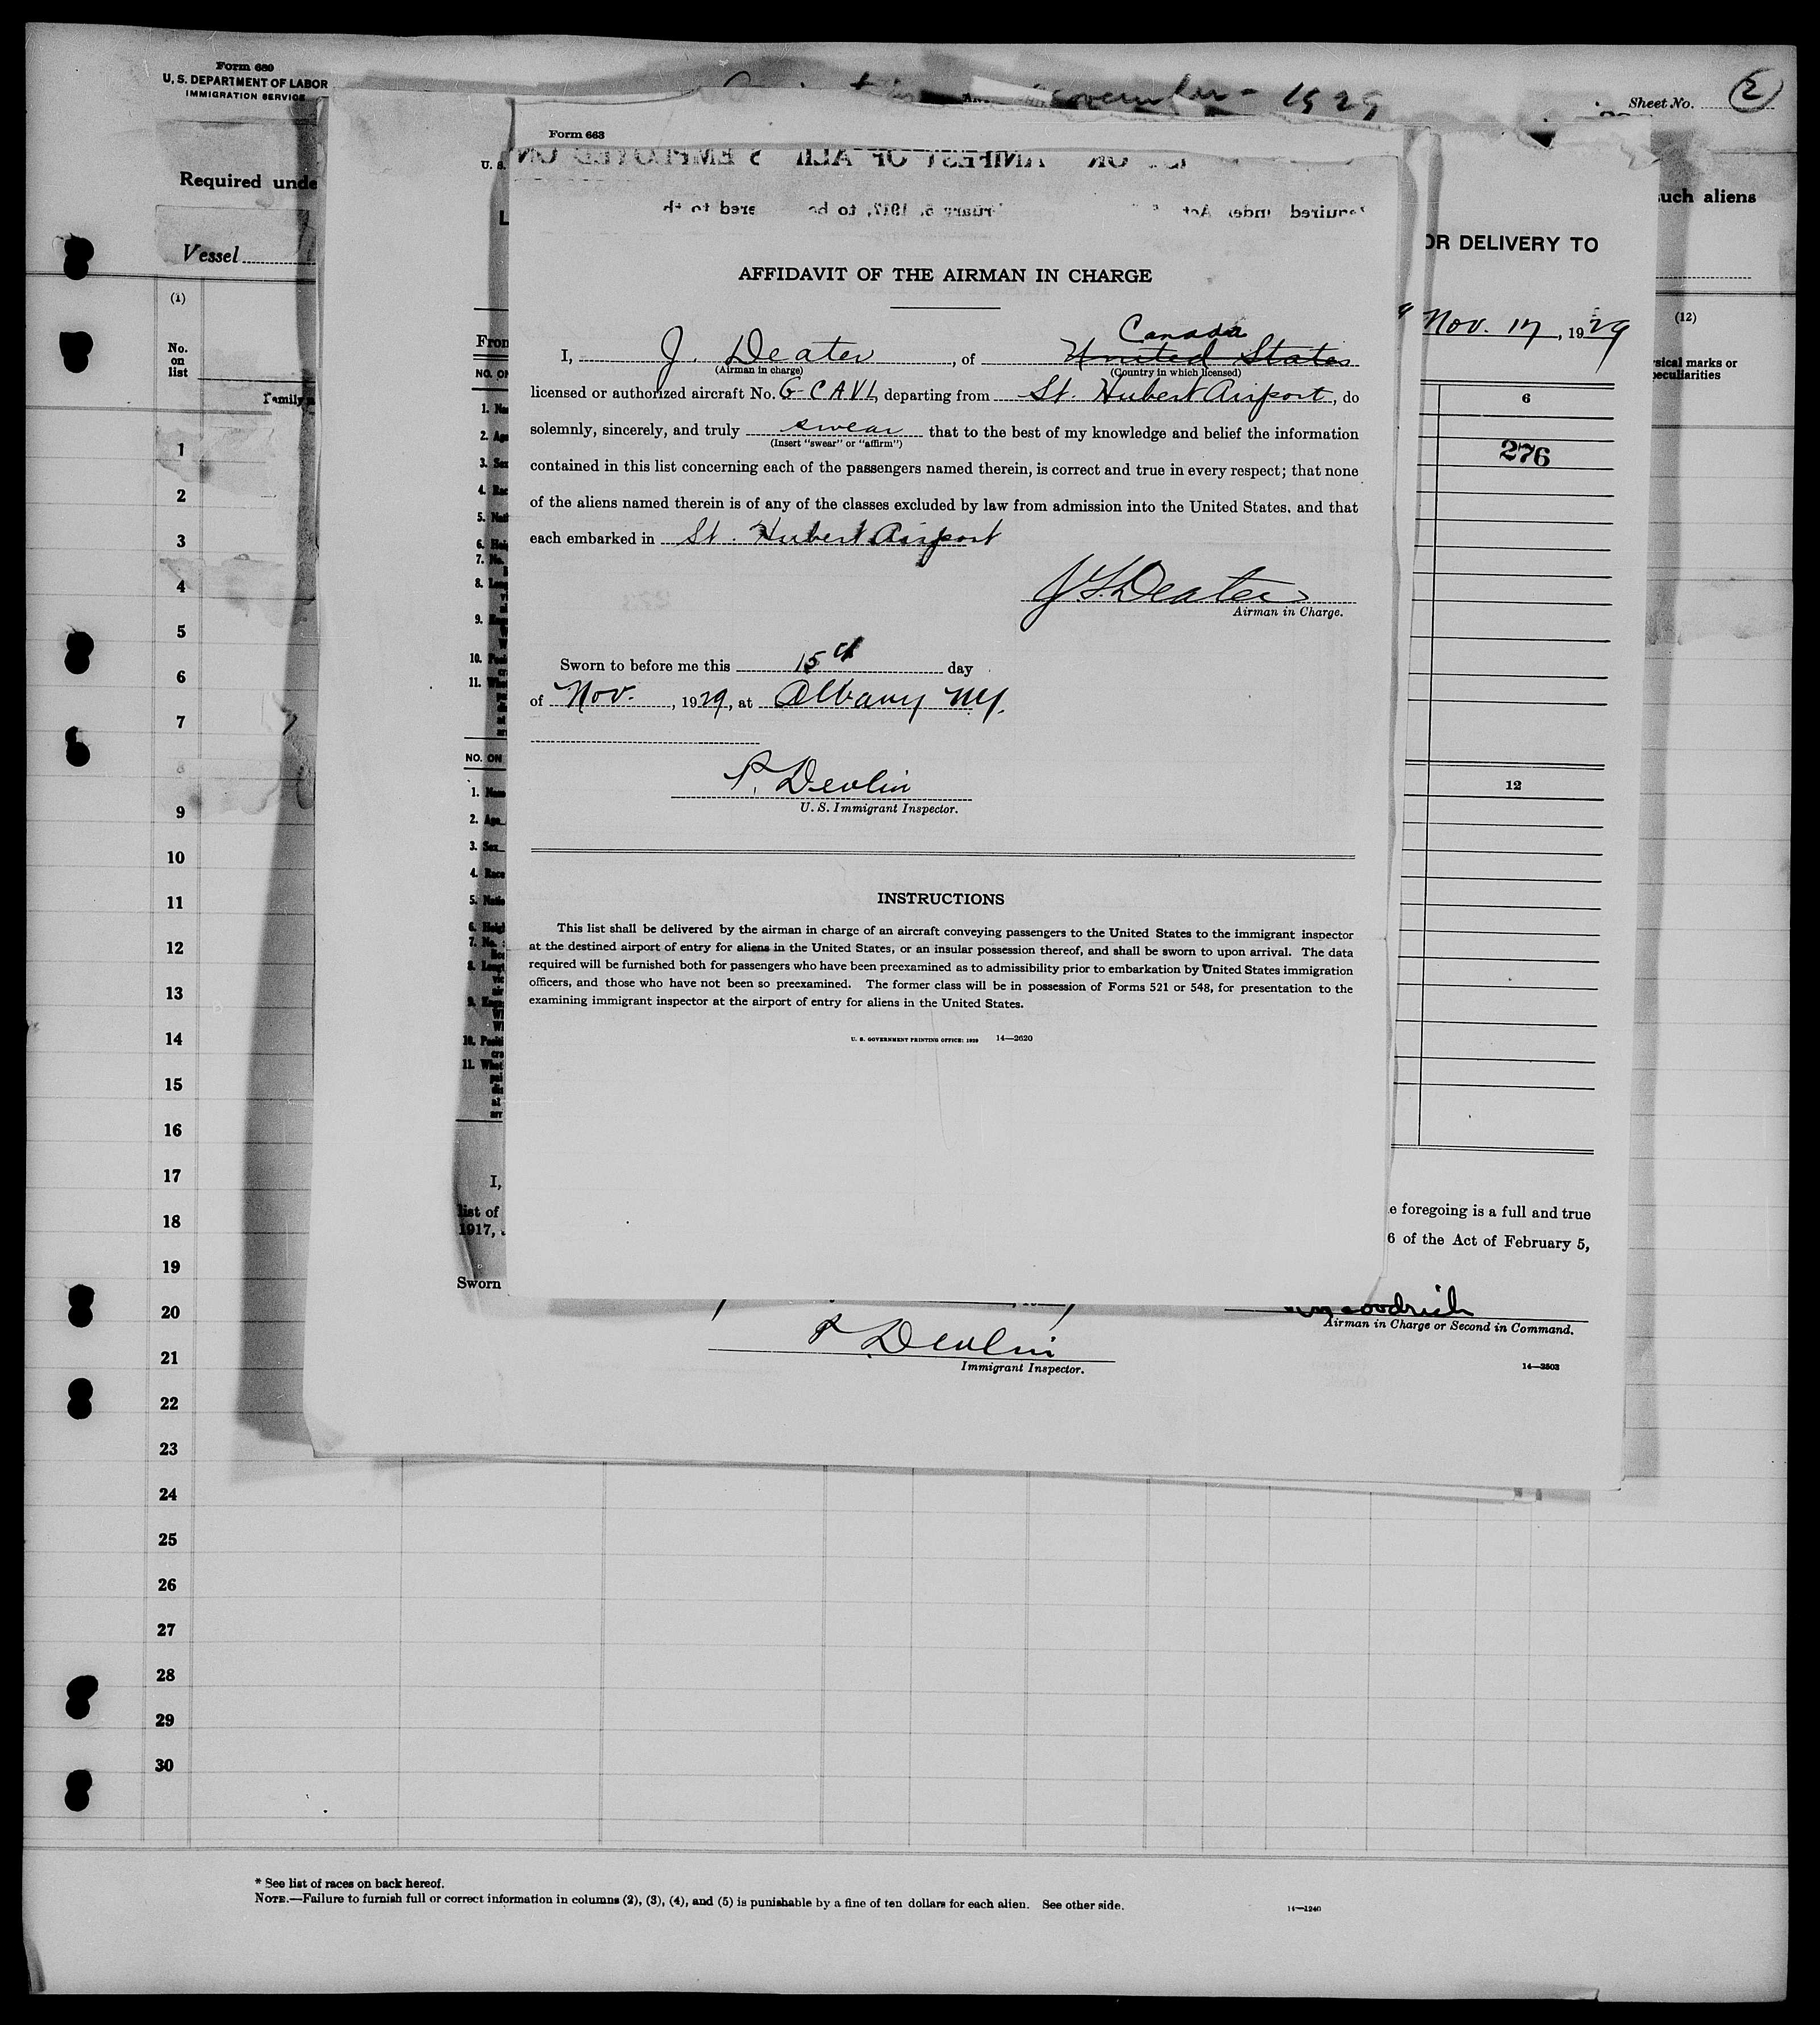 Form 680
U. S. DEPARTMENT OF LABOR
IMMIGRATION SERVICE
November - 1929
Sheet No. 2
Required unde
such aliens
Vessel
(1)
No.
on
list
Family
(12)
sical marks or
peculiarities
OR DELIVERY TO
Nov. 17, 1929
6
276
12
Form 663
U. S.
AFFIDAVIT OF THE AIRMAN IN CHARGE
Canada
I, J. Deater, of United States
(Airman in charge) (Country in which licensed)
licensed or authorized aircraft No. G-CAVL, departing from St. Hubert Airport, do
solemnly, sincerely, and truly swear that to the best of my knowledge and belief the information
(Insert "swear" or "affirm")
contained in this list concerning each of the passengers named therein, is correct and true in every respect; that none
of the aliens named therein is of any of the classes excluded by law from admission into the United States, and that
each embarked in St. Hubert Airport
J S Deater
Airman in Charge.
Sworn to before me this 15th day
of Nov., 1929, at Albany NY.
P. Devlin
U. S. Immigrant Inspector.
INSTRUCTIONS
This list shall be delivered by the airman in charge of an aircraft conveying passengers to the United States to the immigrant inspector
at the destined airport of entry for aliens in the United States, or an insular possession thereof, and shall be sworn to upon arrival. The data
required will be furnished both for passengers who have been preexamined as to admissibility prior to embarkation by United States immigration
officers, and those who have not been so preexamined. The former class will be in possession of Forms 521 or 548, for presentation to the
examining immigrant inspector at the airport of entry for aliens in the United States.
U. S. GOVERNMENT PRINTING OFFICE: 1929 14—2620
From
NO. ON
1.
2. Age
3. Sex
4. Race
5.
6.
7. No.
8.
9.
10.
11.
NO. ON
1.
2. Age
3. Sex
4. Race
5.
6.
7. No.
8.
9.
10.
11.
I,
list of
1917,
e foregoing is a full and true
6 of the Act of February 5,
Sworn
Goodrich
Airman in Charge or Second in Command.
P. Devlin
Immigrant Inspector.
14—2503
1
2
3
4
5
6
7
8
9
10
11
12
13
14
15
16
17
18
19
20
21
22
23
24
25
26
27
28
29
30
* See list of races on back hereof.
NOTE.—Failure to furnish full or correct information in columns (2), (3), (4), and (5) is punishable by a fine of ten dollars for each alien. See other side.
14—1240